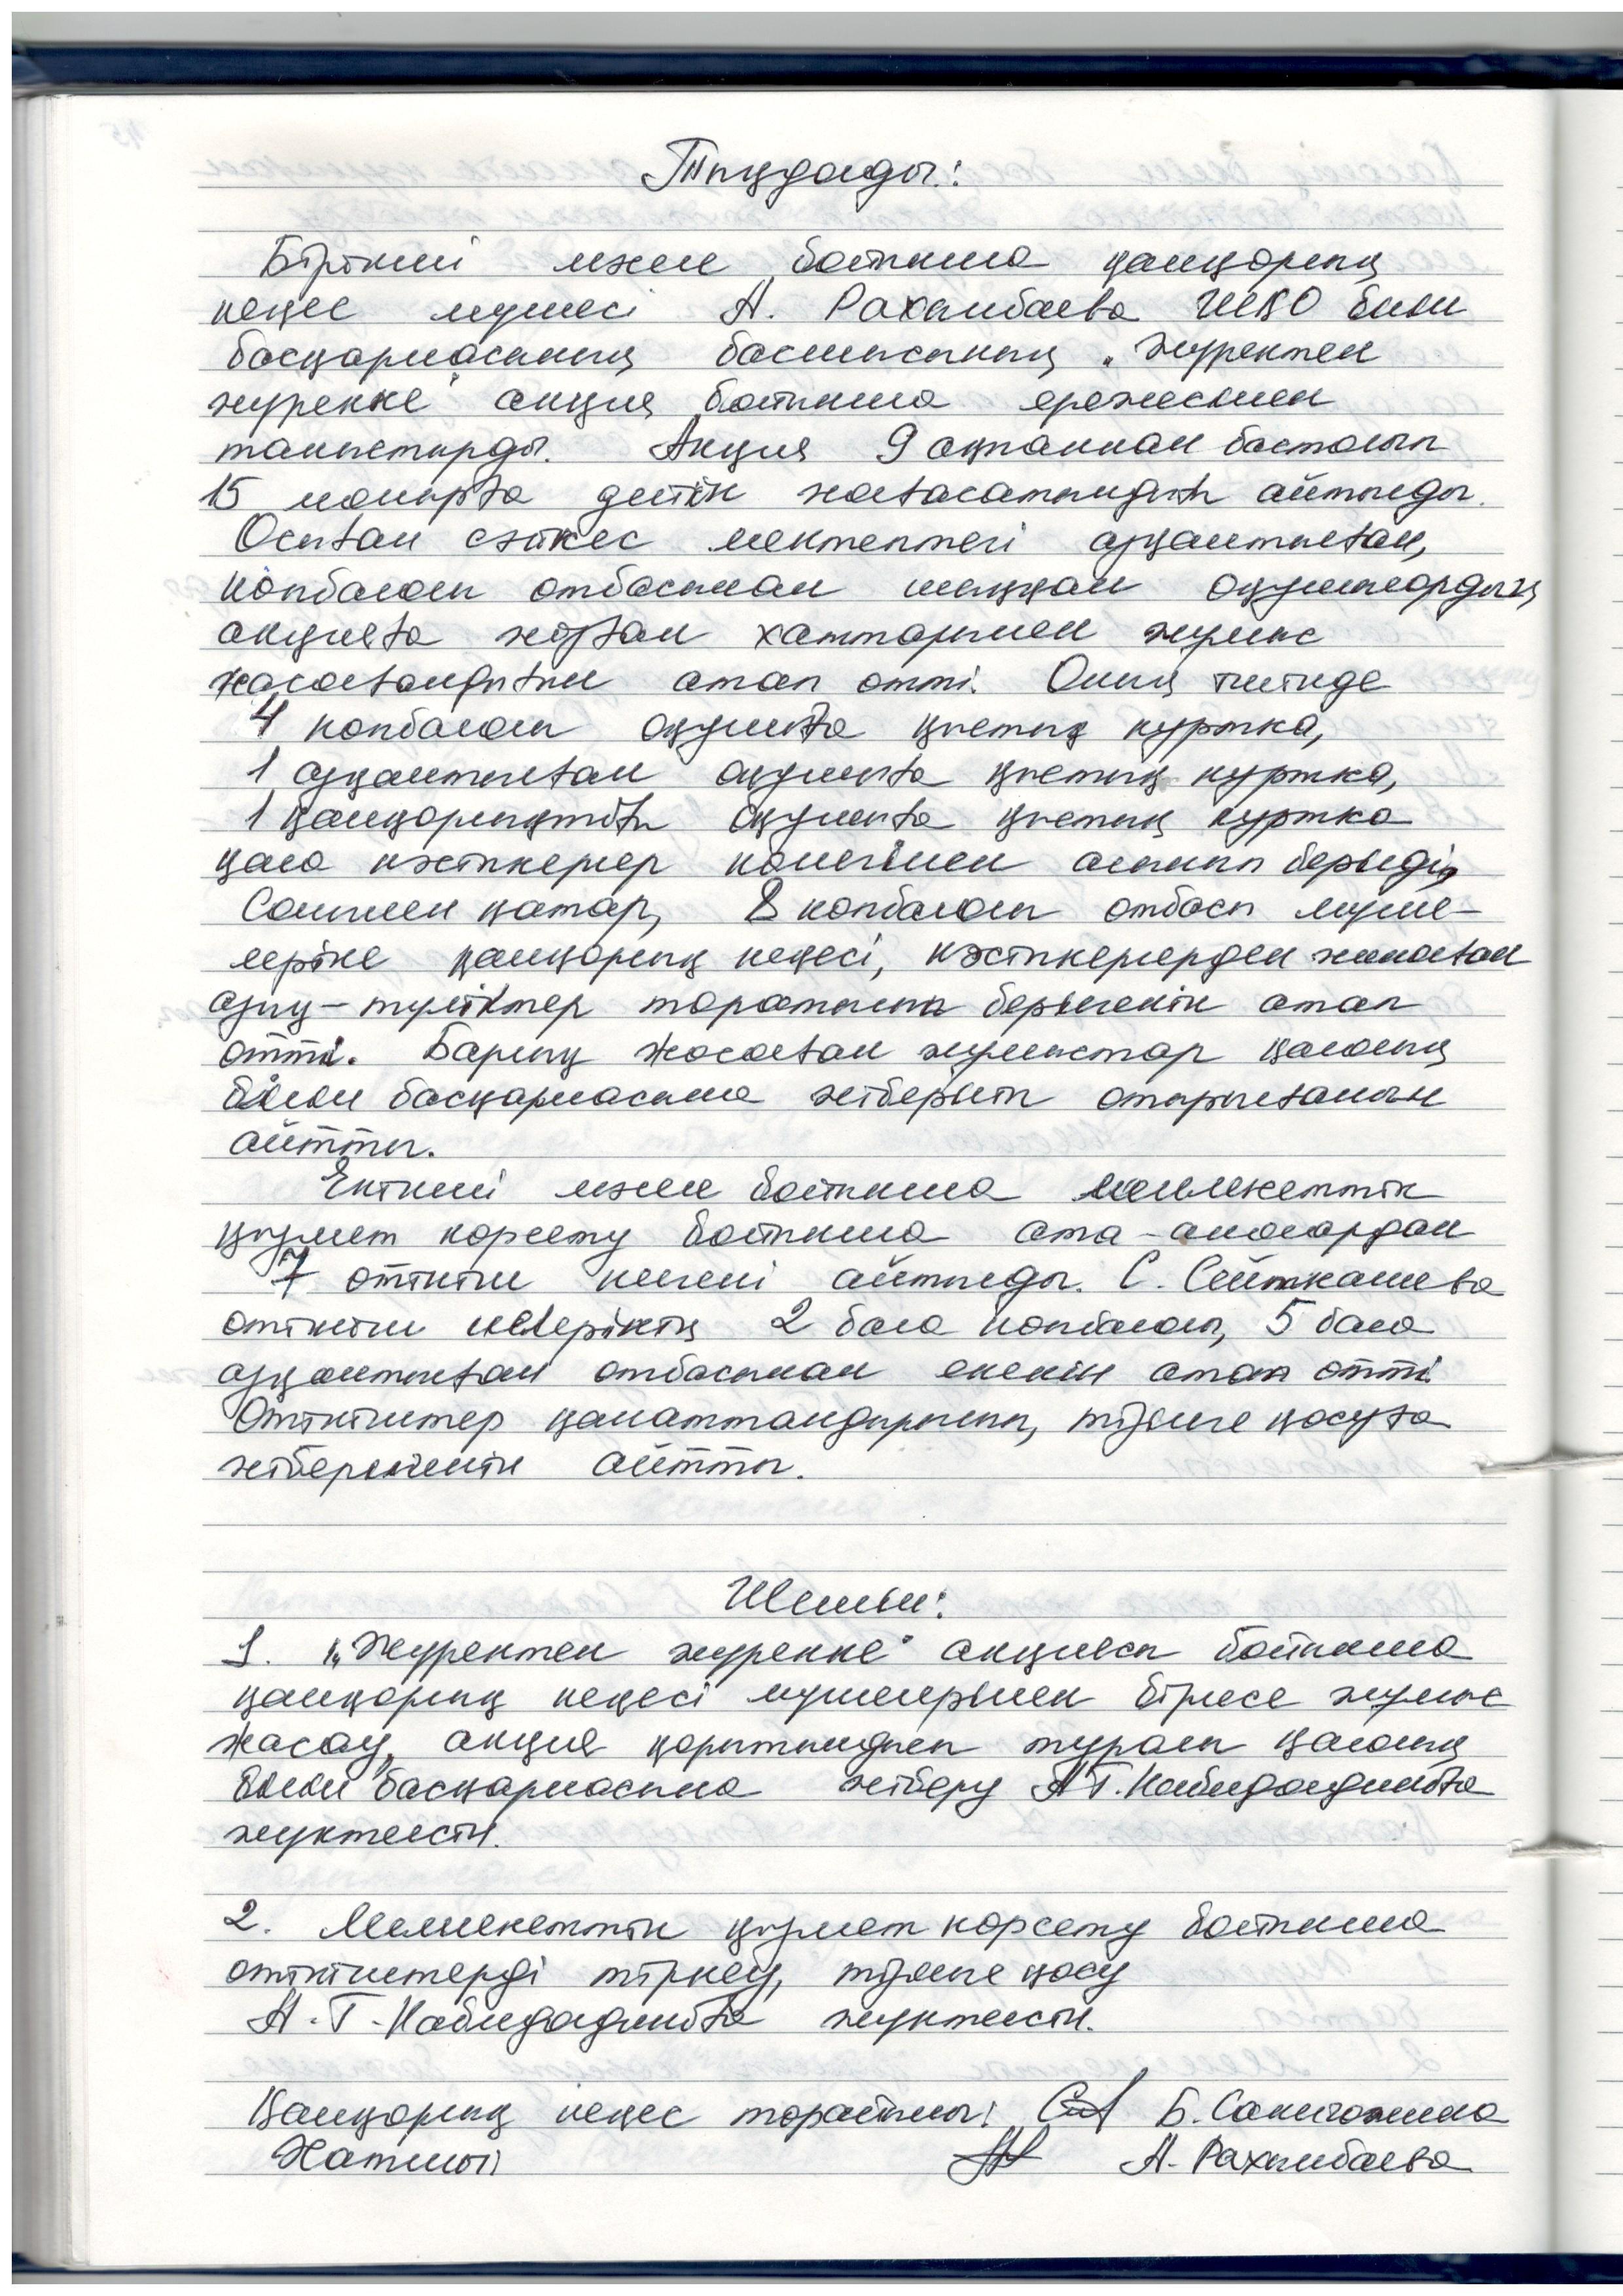 Тыңдалды:
Бірінші мәселе бойынша қамқорлық
кеңес мүшесі А. Рахымбаева ШҚО білім
басқармасының басшысының „Жүректен
жүрекке" акция бойынша ережесімен
таныстырды. Акция 9 ақпаннан басталып
15 наурызға дейін жалғасатындығы айтылды.
Осыған сәйкес мектептегі аз қамтылған,
көпбалалы отбасынан шыққан оқушылардың
акцияға жазған хаттарымен жұмыс
жасалғандығын атап өтті. Оның ішінде
4 көпбалалы оқушыға қыстық куртка,
1 аз қамтылған оқушыға қыстық куртка,
1 қамқорлықтағы оқушыға қыстық куртка
қала кәсіпкерлер көмегімен алынып берілді,
Сонымен қатар, 8 көпбалалы отбасы мүше-
леріне қамқорлық кеңесі, кәсіпкерлерден жиналған
азық-түліктер таратылып берілгенін атап
өтті. Барлық жасалған жұмыстар қалалық
білім басқармасына жіберіліп отырылғанын
айтты.
Екінші мәселе бойынша мемлекеттік
қызмет көрсету бойынша ата-аналардан
7 өтініш келгені айтылды. С. Сейтказиева
өтініш иелерінің 2 бала көпбалалы, 5 бала
аз қамтылған отбасынан екенін атап өтті.
Өтініштер қанаттандырылып, тізімге қосуға
жіберілгенін айтты.
Шешім:
1. „Жүректен жүрекке" акциясы бойынша
қамқорлық кеңесі мүшелерімен бірлесе жұмыс
жасау, акция қорытындысы туралы қалалық
білім басқармасына жіберу А.Т. Набидолдинаға
жүктелсін.
2. Мемлекеттік қызмет көрсету бойынша
өтініштерді тіркеу, тізімге қосу
А.Т. Набидолдинаға жүктелсін.
Қамқорлық кеңес төрайымы: Б. Санигожина
Хатшы: А. Рахымбаева